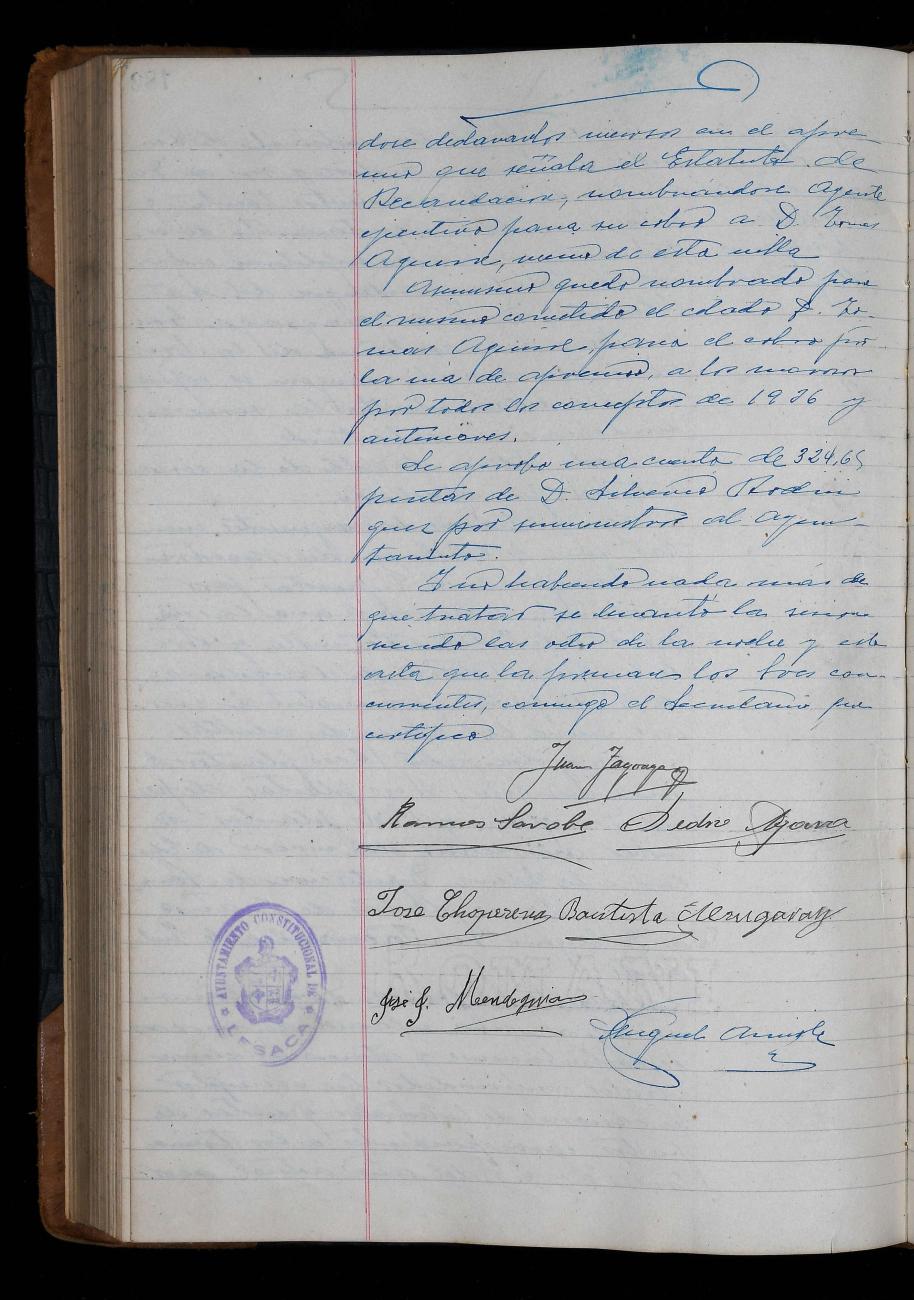 dose declararlos incursos en el apre
mio que señala el Estatuto de
Recaudacion, nombrándose Agente
ejecutivo para su cobro a D. Tomas
Aguirre, vecino de esta villa
Asimismo quedó nombrado para
el mismo cometido el citado D. To-
mas Aguirre para el cobro por
la via de apremio, a los morosos
por todos los conceptos de 1936 y
anteriores.
Se aprobó una cuenta de 324,65
pesetas de D. Silverio Rodri
guez por suministros al Ayun-
tamiento.
Y no habiendo nada más de
que tratar se levantó la sesion
siendo las ocho de la noche y esta
acta que la firman los Sres con-
currentes, conmigo el Secretario que
certifico
Juan Jagoaga
Ramos Sarobe Pedro Igoa
José Choperena Bautista Elizagaray
José J. Mendeguia
Miguel
AYUNTAMIENTO CONSTITUCIONAL DE
LESACA